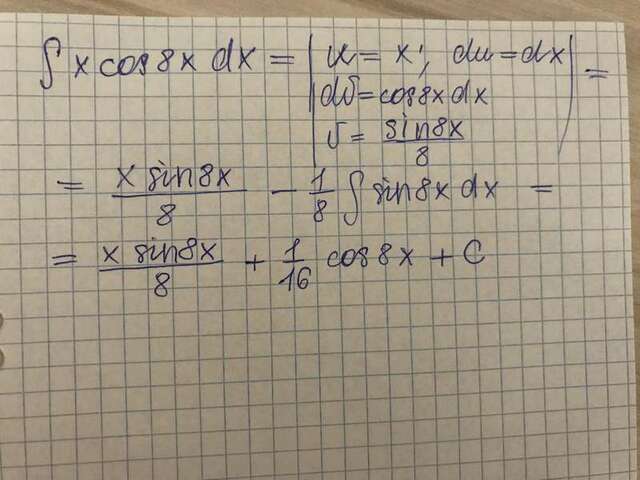 ∫ x cos 8x dx = | u = x; du = dx | =
| dv = cos 8x dx
v = sin 8x / 8
= x sin 8x / 8 - 1/8 ∫ sin 8x dx =
= x sin 8x / 8 + 1/16 cos 8x + C